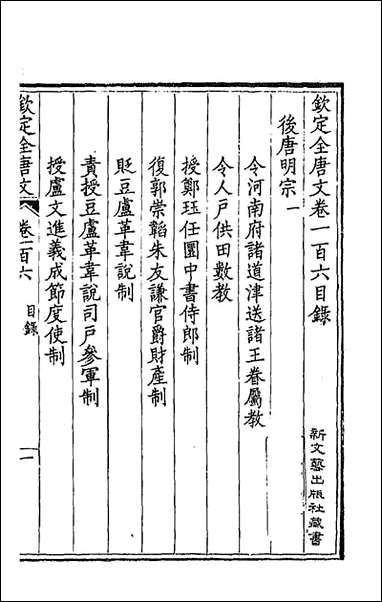 欽定全唐文卷一百六目錄
後唐明宗一
令河南府諸道津送諸王眷屬教
令人戶供田數教
授鄭珏任圜中書侍郎制
復郭崇韜朱友謙官爵財產制
貶豆盧革韋說制
責授豆盧革韋說司戶參軍制
授盧文進義成節度使制
欽定全唐文
卷一百六
目錄
一
新文藝出版社藏書